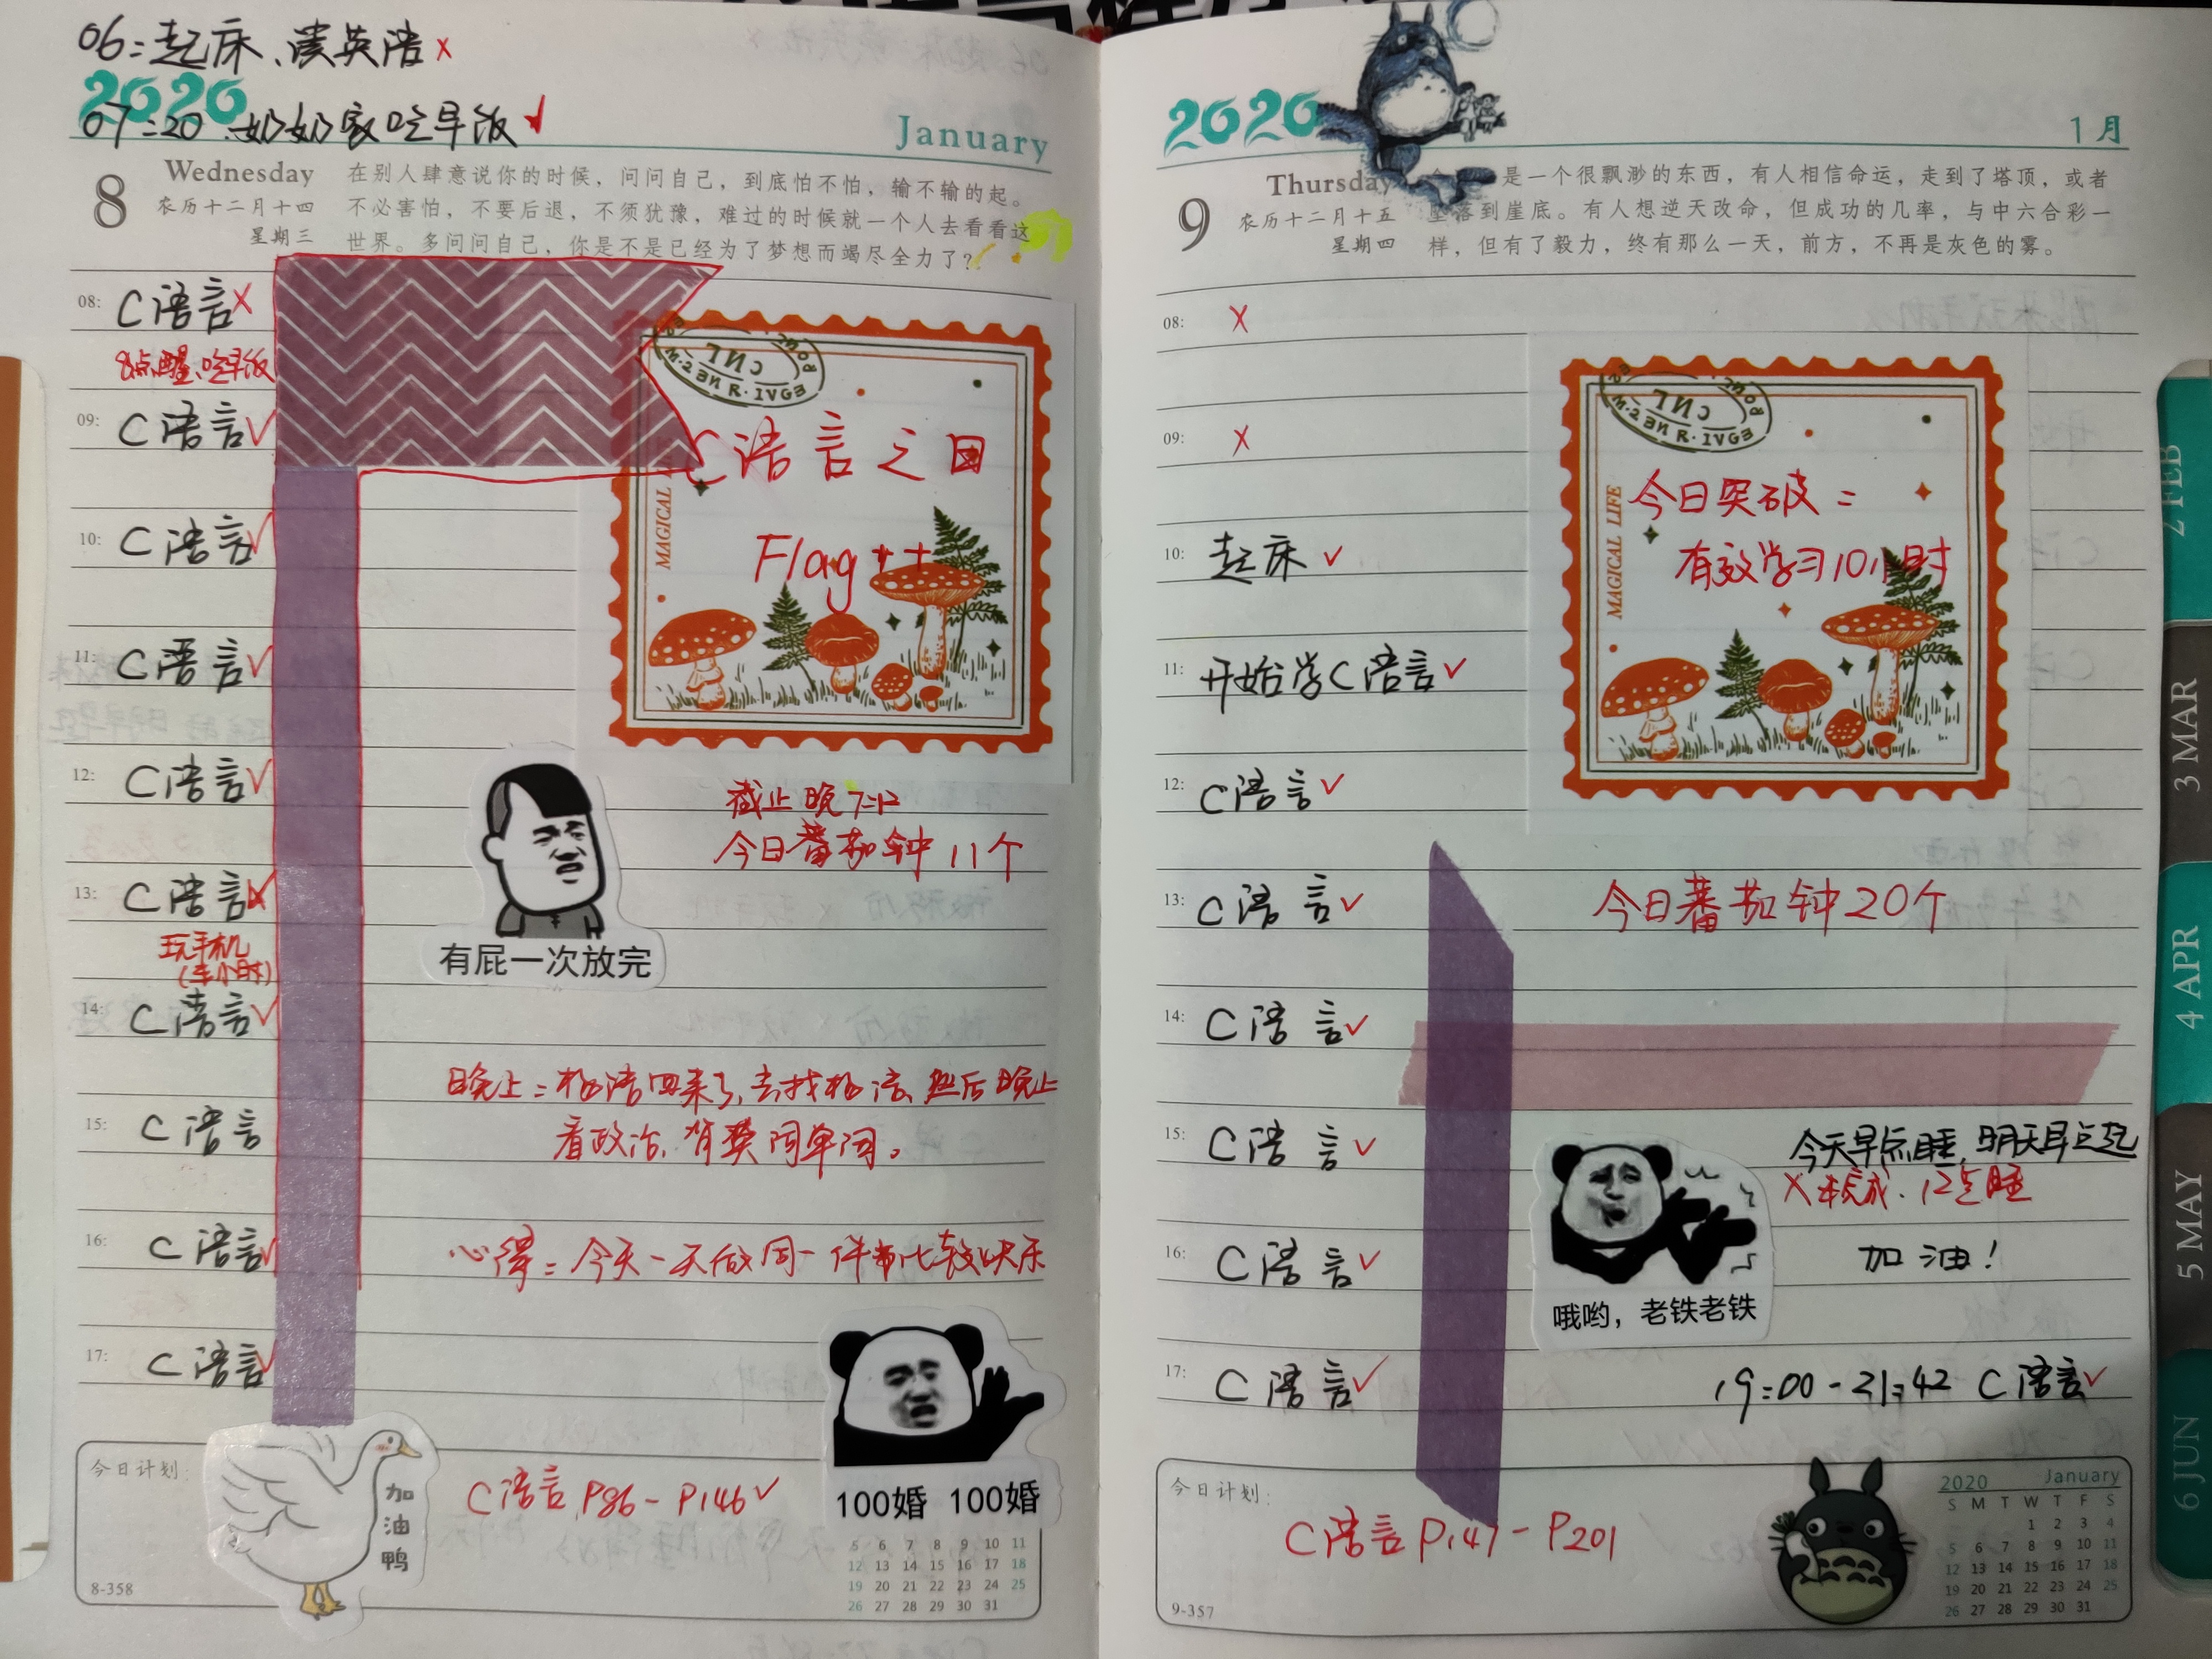 06:起床、读英语 x
2020
07:20 奶奶家吃早饭 ✓
January
8
Wednesday
农历十二月十四
星期三
在别人肆意说你的时候，问问自己，到底怕不怕，输不输的起。
不必害怕，不要后退，不须犹豫，难过的时候就一个人去看看这
世界。多问问自己，你是不是已经为了梦想而竭尽全力了?
08: C语言 x
8点醒、吃早饭
09: C语言 ✓
10: C语言 ✓
11: C语言 ✓
12: C语言 ✓
13: C语言
玩手机
(半小时)
14: C语言 ✓
15: C语言
16: C语言 ✓
17: C语言 ✓
MAGICAL
C语言之日
Flag++
截止晚7:12
今日番茄钟11个
有屁一次放完
看政治,背英词单词。
心得:今天一天做同一件事比较快乐
今日计划:
加油鸭
C语言 P86-P146 ✓
100婚 100婚
5 6 7 8 9 10 11
12 13 14 15 16 17 18
19 20 21 22 23 24 25
26 27 28 29 30 31
8-358
2020
1月
9
Thursday
农历十二月十五
星期四
是一个很飘渺的东西，有人相信命运，走到了塔顶，或者
坠落到崖底。有人想逆天改命，但成功的几率，与中六合彩一
样，但有了毅力，终有那么一天，前方，不再是灰色的雾。
08: x
09: x
10: 起床 ✓
11: 开始学C语言 ✓
12: C语言 ✓
13: C语言 ✓
14: C语言 ✓
15: C语言 ✓
16: C语言 ✓
17: C语言 ✓
MAGICAL LIFE
今日突破:
有效学习10小时
今日番茄钟20个
今天早点睡,明天早点起
x未完成.12点睡
加油!
哦哟，老铁老铁
19:00-21:42 C语言 ✓
今日计划:
C语言 P147-P201
2020 January
S M T W T F S
1 2 3 4
5 6 7 8 9 10 11
12 13 14 15 16 17 18
19 20 21 22 23 24 25
26 27 28 29 30 31
9-357
2 FEB
3 MAR
4 APR
5 MAY
6 JUN